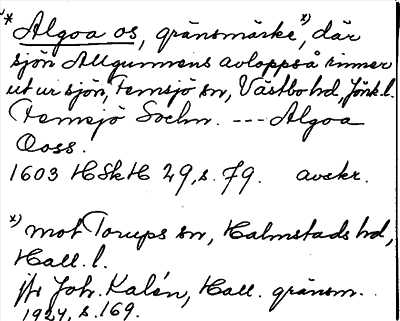 * Algoa os, gränsmärke x), där
sjön Allgunnens avloppså rinner
ut ur sjön, Femsjö sn, Västbo hd, Jönk. l.
Femsjö Sochn. --- Algoa
Ooss.
1603 HSkH 29, s. 79. avskr.
x) mot Torups sn, Halmstads hd,
Hall. l.
jfr Joh. Kalén, Hall. gränsm.
1924, s. 169.